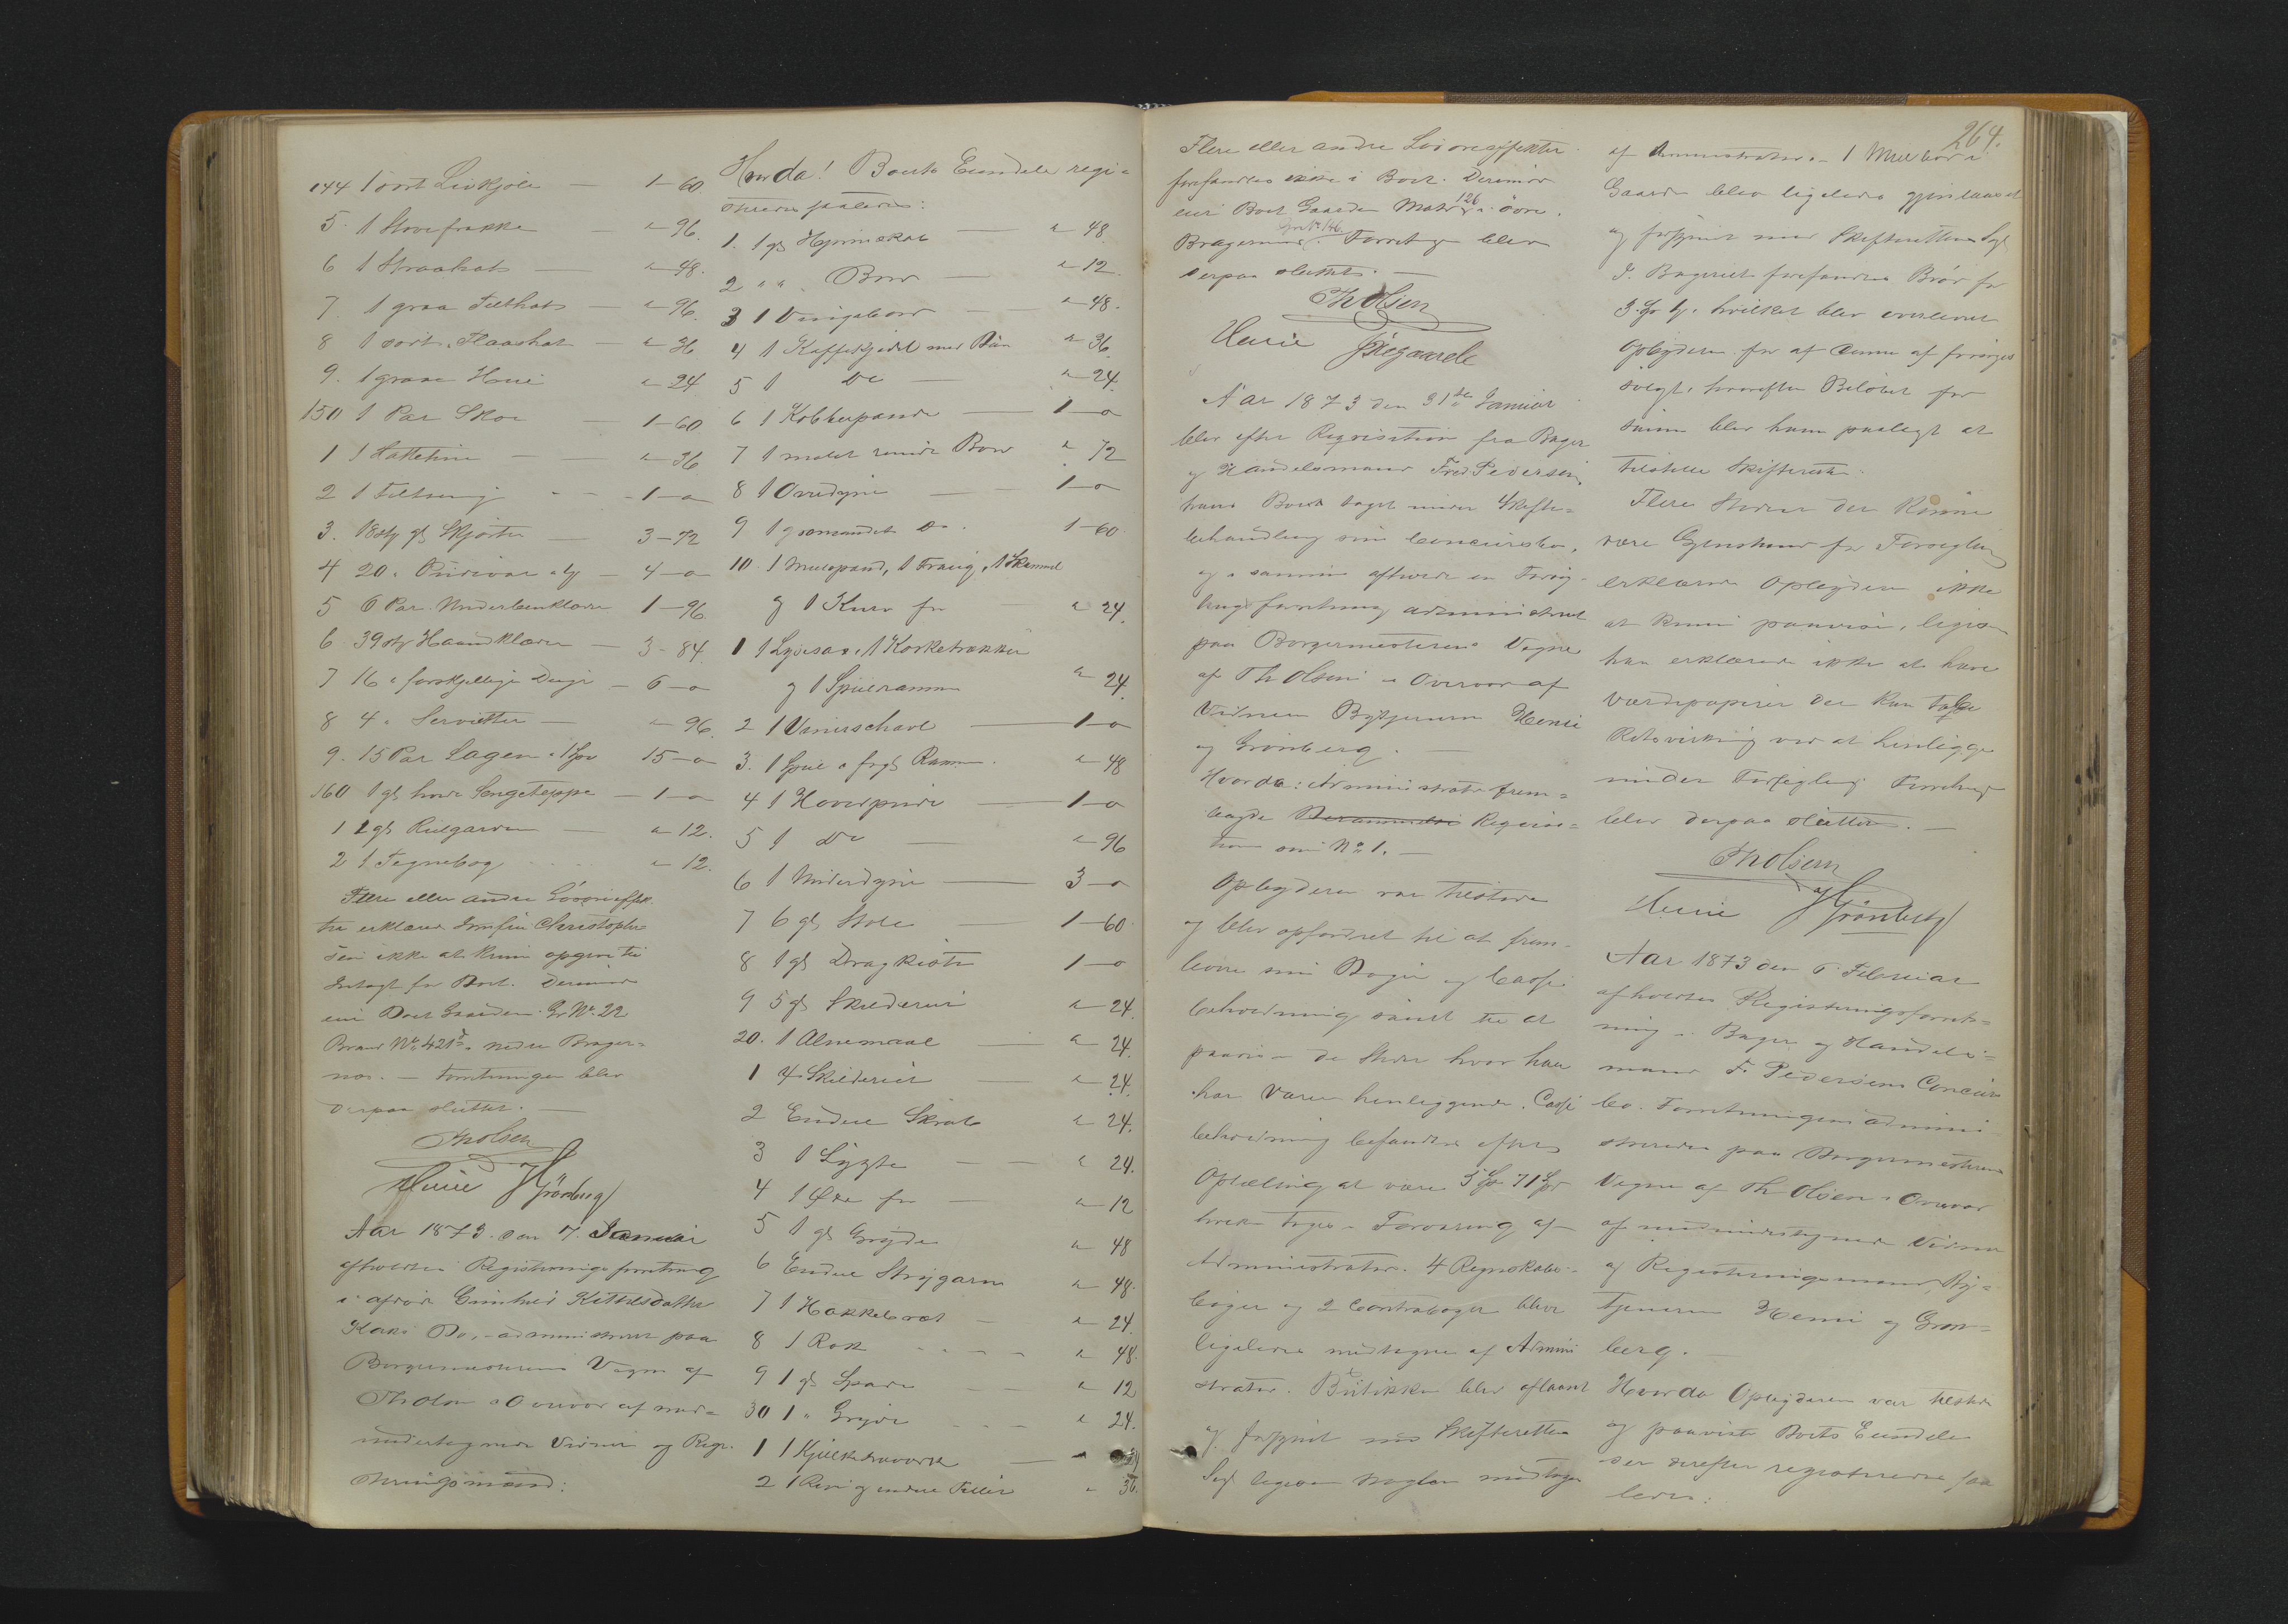 144 1 sort Livkjole — 1-60
5. 1 Stovefrakke — " - 96.
6 1 Straahat — " - 48.
7. 1 graa Filthat — " - 96.
8 1 sort Flaashat — " - 36
9. 1 graae Hue " - 24
150 1 Par Skoe — 1-60
1 1 Hattetine — " - 36
2 1 Feltseng - 1 - "
3. 18 stk gl Skjorter — 3-72
4 20 " — 4 - "
5 6 Par Underbenklæder 1-96
6 39 stk Haandklæder — 3-84.
7 16 " forskjellige Duge — 6 - "
8 4 " Servietter — " - 96.
9. 15 Par Lagen a 1 Spd 15 - "
160 1 gl hvidt Sengeteppe — 1 - "
1 2 gl Rulgardiner — " - 12.
2 1 Tegnebog " - 12.
Flere eller andre Løsøreeffek
ter erklærede Christopher
sen ikke at kunne opgive til
Indtægt for Boet. Derimod
eier Boet Gaarden Gr No. 22
Brand No. 421 i nedre Brager=
næs. — Forretningen blev
derpaa sluttet. —
Th Olsen
Henie HGrønberg
Aar 1873 den 17. Januar
afholdtes Registreringsforretning
i afdøde Gunhild Kittelsdatter
Bo, administreret paa
Borgermesterens Vegne af
Th Olsen i Overvær af med=
undertegnede Vidner og Regi-
streringsmænd:
Hvorda! Boets Eiendele regi=
streredes saaledes:
1. 1 gl Hjørneskab — " - 48
2 " " Bord — " - 12.
3 1 Vingebord — " - 48.
4 1 Kaffekjedel med " - 36
5 1 Do — " - 24.
6 1 Kobberpande — 1 - "
7 1 malet rundt Bord " - 72
8 1 Overdyne — 1 - "
9 1 Do. 1-60.
10. 1 Skammel
og 1 Kurv for " 24.
1 1 Lysesax, 1 Korketrækker
og 1 Speilramme " 24.
2 1 — 1 - "
3. 1 Speil i Ramme " - 48
4 1 Hovedpude — 1 - "
5 1 Do — " - 96
6 1 Underdyne — 3 - "
7 6 gl Stole — 1-60
8 1 gl Dragkiste 1 - "
9 5 gl Skilderier " - 24.
20. 1 Alnemaal — " - 24.
1 4 Skilderier — " - 24.
2 Endel Skrab " - 24.
3 1 Lygte — " 24.
4 1 Øxe for — " - 12
5 1 gl Gryde " - 48
6 Endel Strygarn " - 48.
7 1 Hakkebræt — " - 24.
8 1 Rok " - 48.
9 1 gl Spade " - 12
30 1 " Gryde " 24.
1 1 —
2 1 og endel Filler " 36.
264.
Flere eller andre Løsøreeffekter
forefandtes ikke i Boet. Derimod
eier Boet Gaarden Matr No 126 i øvre
Bragernæs. Forretningen blev
Gr No 146.
derpaa sluttet. —
Th Olsen
Henie
Aar 1873 den 31te Januar
blev efter Requisition fra Bager
og Handelsmand Fred Pedersen,
hans Bo taget under Skifte=
behandling som Concursbo,
og i samme afholdt en Forseg-
lingsforretning administreret
paa Borgermesterens Vegne
af Th Olsen i Overvær af
Vidnerne Bytjenerne Henie
og Grønberg. —
Hvorda: Administrator frem=
lagde Requisi=
tionen som No 1. —
Opbyderen var tilstede
og blev opfordret til at frem-
levere sine Bøger og Cassa
beholdning samt til at
paavise de Steder hvor han
har Varer henliggende. Cassa
beholdning befandtes efter
Optælling at være 5 Spd 71 Sk
hvilke toges i Forvaring af
Administrator. 4 Regnskabs=
bøger og 2 Contrabøger blev
ligeledes medtagne af Admini
strator. Butikken blev aflaaset
og forsynet med Skifterettens
Segl ligesom Nøglen medtoges
af Administrator. — 1 i
Gaarden blev ligeledes gjenlaaset
og forsynet med Skifterettens Segl
I Bageriet forefandtes Brød for
3 Spd, hvilket blev overleveret
Opbyderen for af denne at forsøges
solgt, hvorefter Beløbet for
samme blev ham paalagt at
tilstille Skifteretten.
Flere Steder der kunne
være Gjenstand for Forsegling
erklærede Opbyderen ikke
at kunne paavise, ligesom
han erklærede ikke at have
Værdipapirer der kan tabe
Retsvirkning ved at henligge
under Forsegling. Forretningen
blev derpaa sluttet. —
Th Olsen
Henie HGrønberg
Aar 1873 den 6 Februar
afholdtes Registreringsforret=
ning i Bager og Handels=
mand F. Pedersens Concurs
bo. Forretningen admini
streredes paa Borgermesterens
Vegne af Th Olsen i Overvær
af medundertegnede Vidner
og Registreringsmænd, By=
tjenerne Henie og Grøn=
berg. —
Hvorda Opbyderen var tilstede
og paaviste Boets Eiendele
der derefter registreredes saa
ledes: